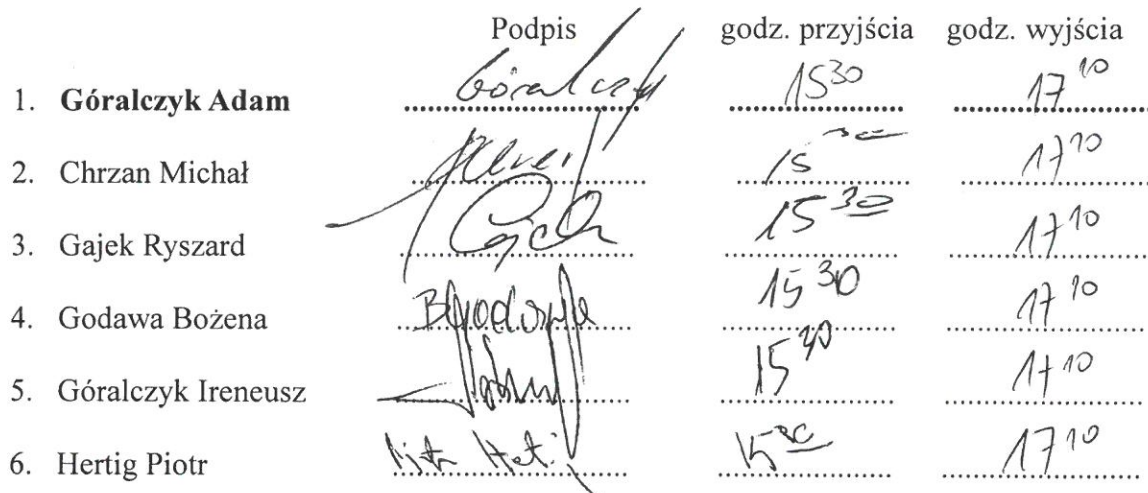 Podpis godz. przyjścia godz. wyjścia
1. Góralczyk Adam Góralczyk 15 30 17 10
2. Chrzan Michał 15 30 17 10
3. Gajek Ryszard 15 30 17 10
4. Godawa Bożena BGodawa 15 30 17 10
5. Góralczyk Ireneusz 15 30 17 10
6. Hertig Piotr Piotr Hertig 15 30 17 10